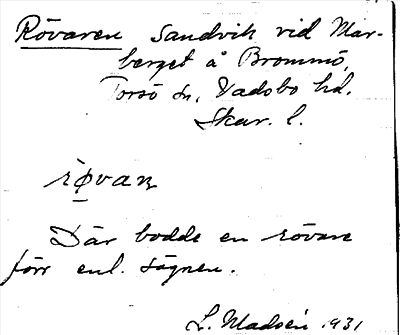 Rövaren sandvik vid Mar-
berget å Brommö,
Torsö sn, Vadsbo hd.
Skar. l.
røvaɳ
Där bodde en rövare
förr enl. sägnen.
L. Madsén 1931